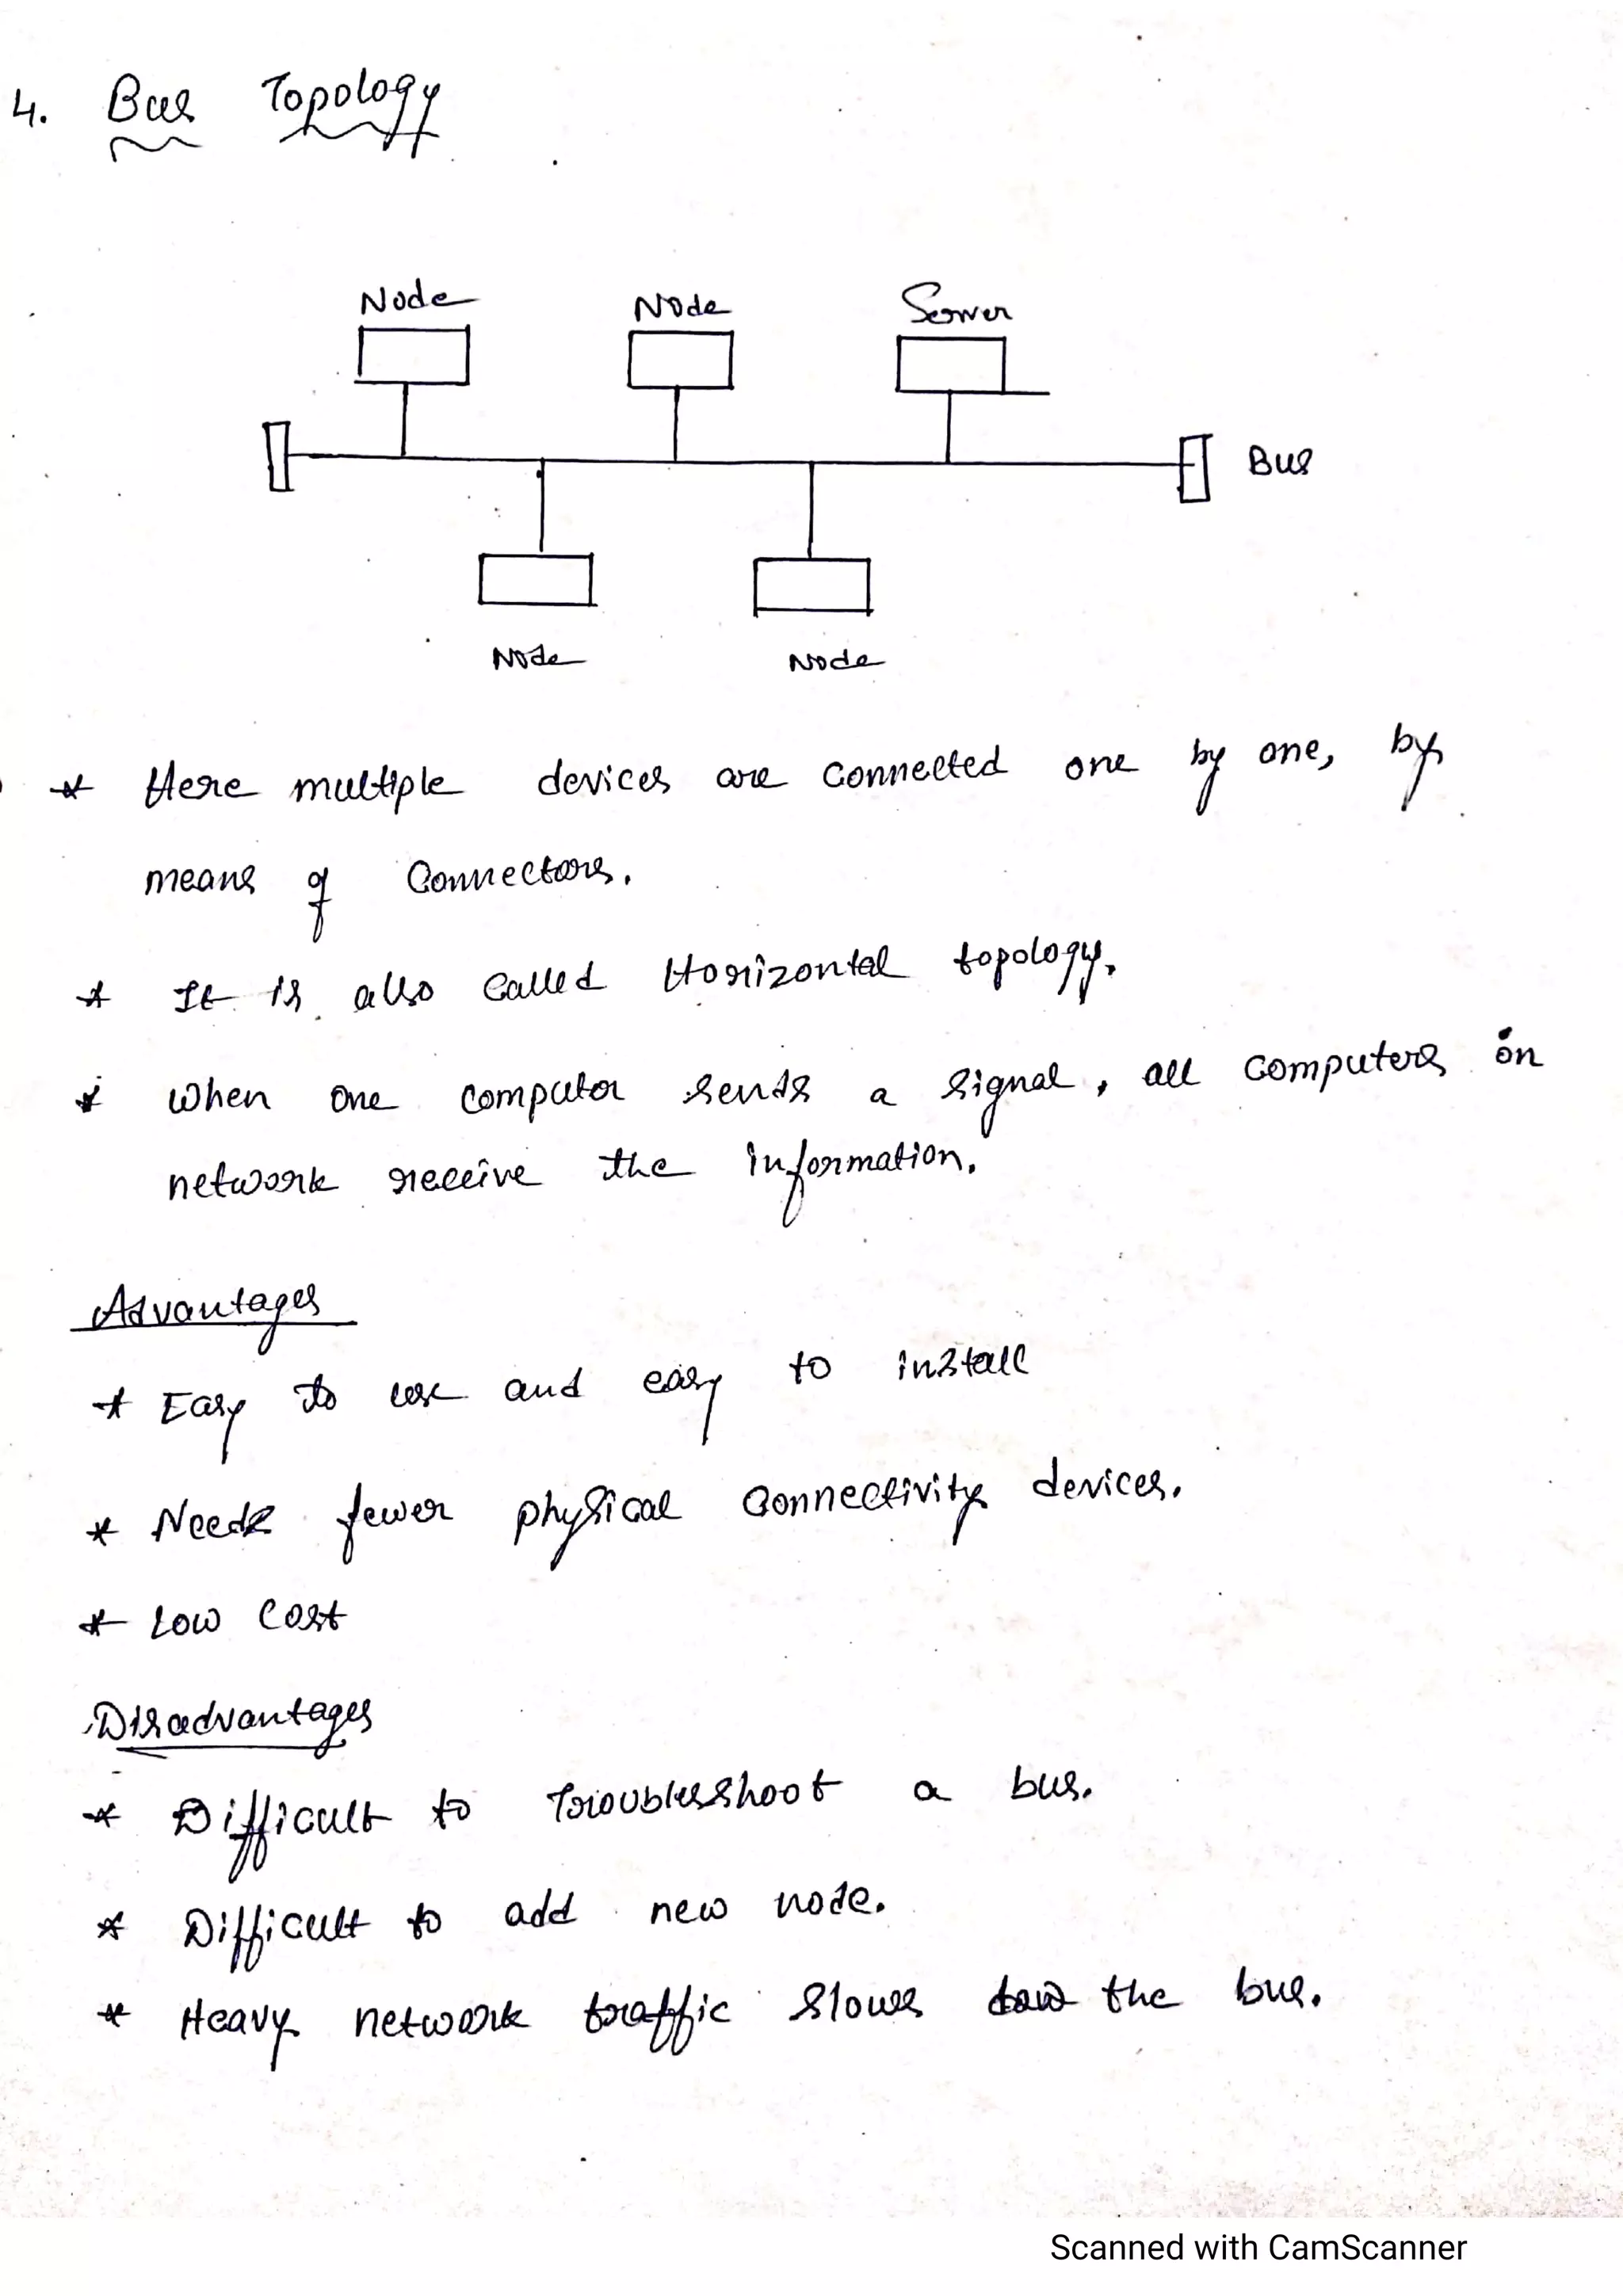 4. Bus Topology
Node Node Server
Bus
Node Node
* Here multiple devices are connected one by one, by
means of Connectors.
* It is also called Horizontal topology.
* when one computer sends a signal, all computers on
network receive the information.
Advantages
* Easy to use and easy to install
* Needs fewer physical connectivity devices.
* Low cost
Disadvantages
* Difficult to Troubleshoot a bus.
* Difficult to add new node.
* Heavy network traffic slows the bus.
Scanned with CamScanner